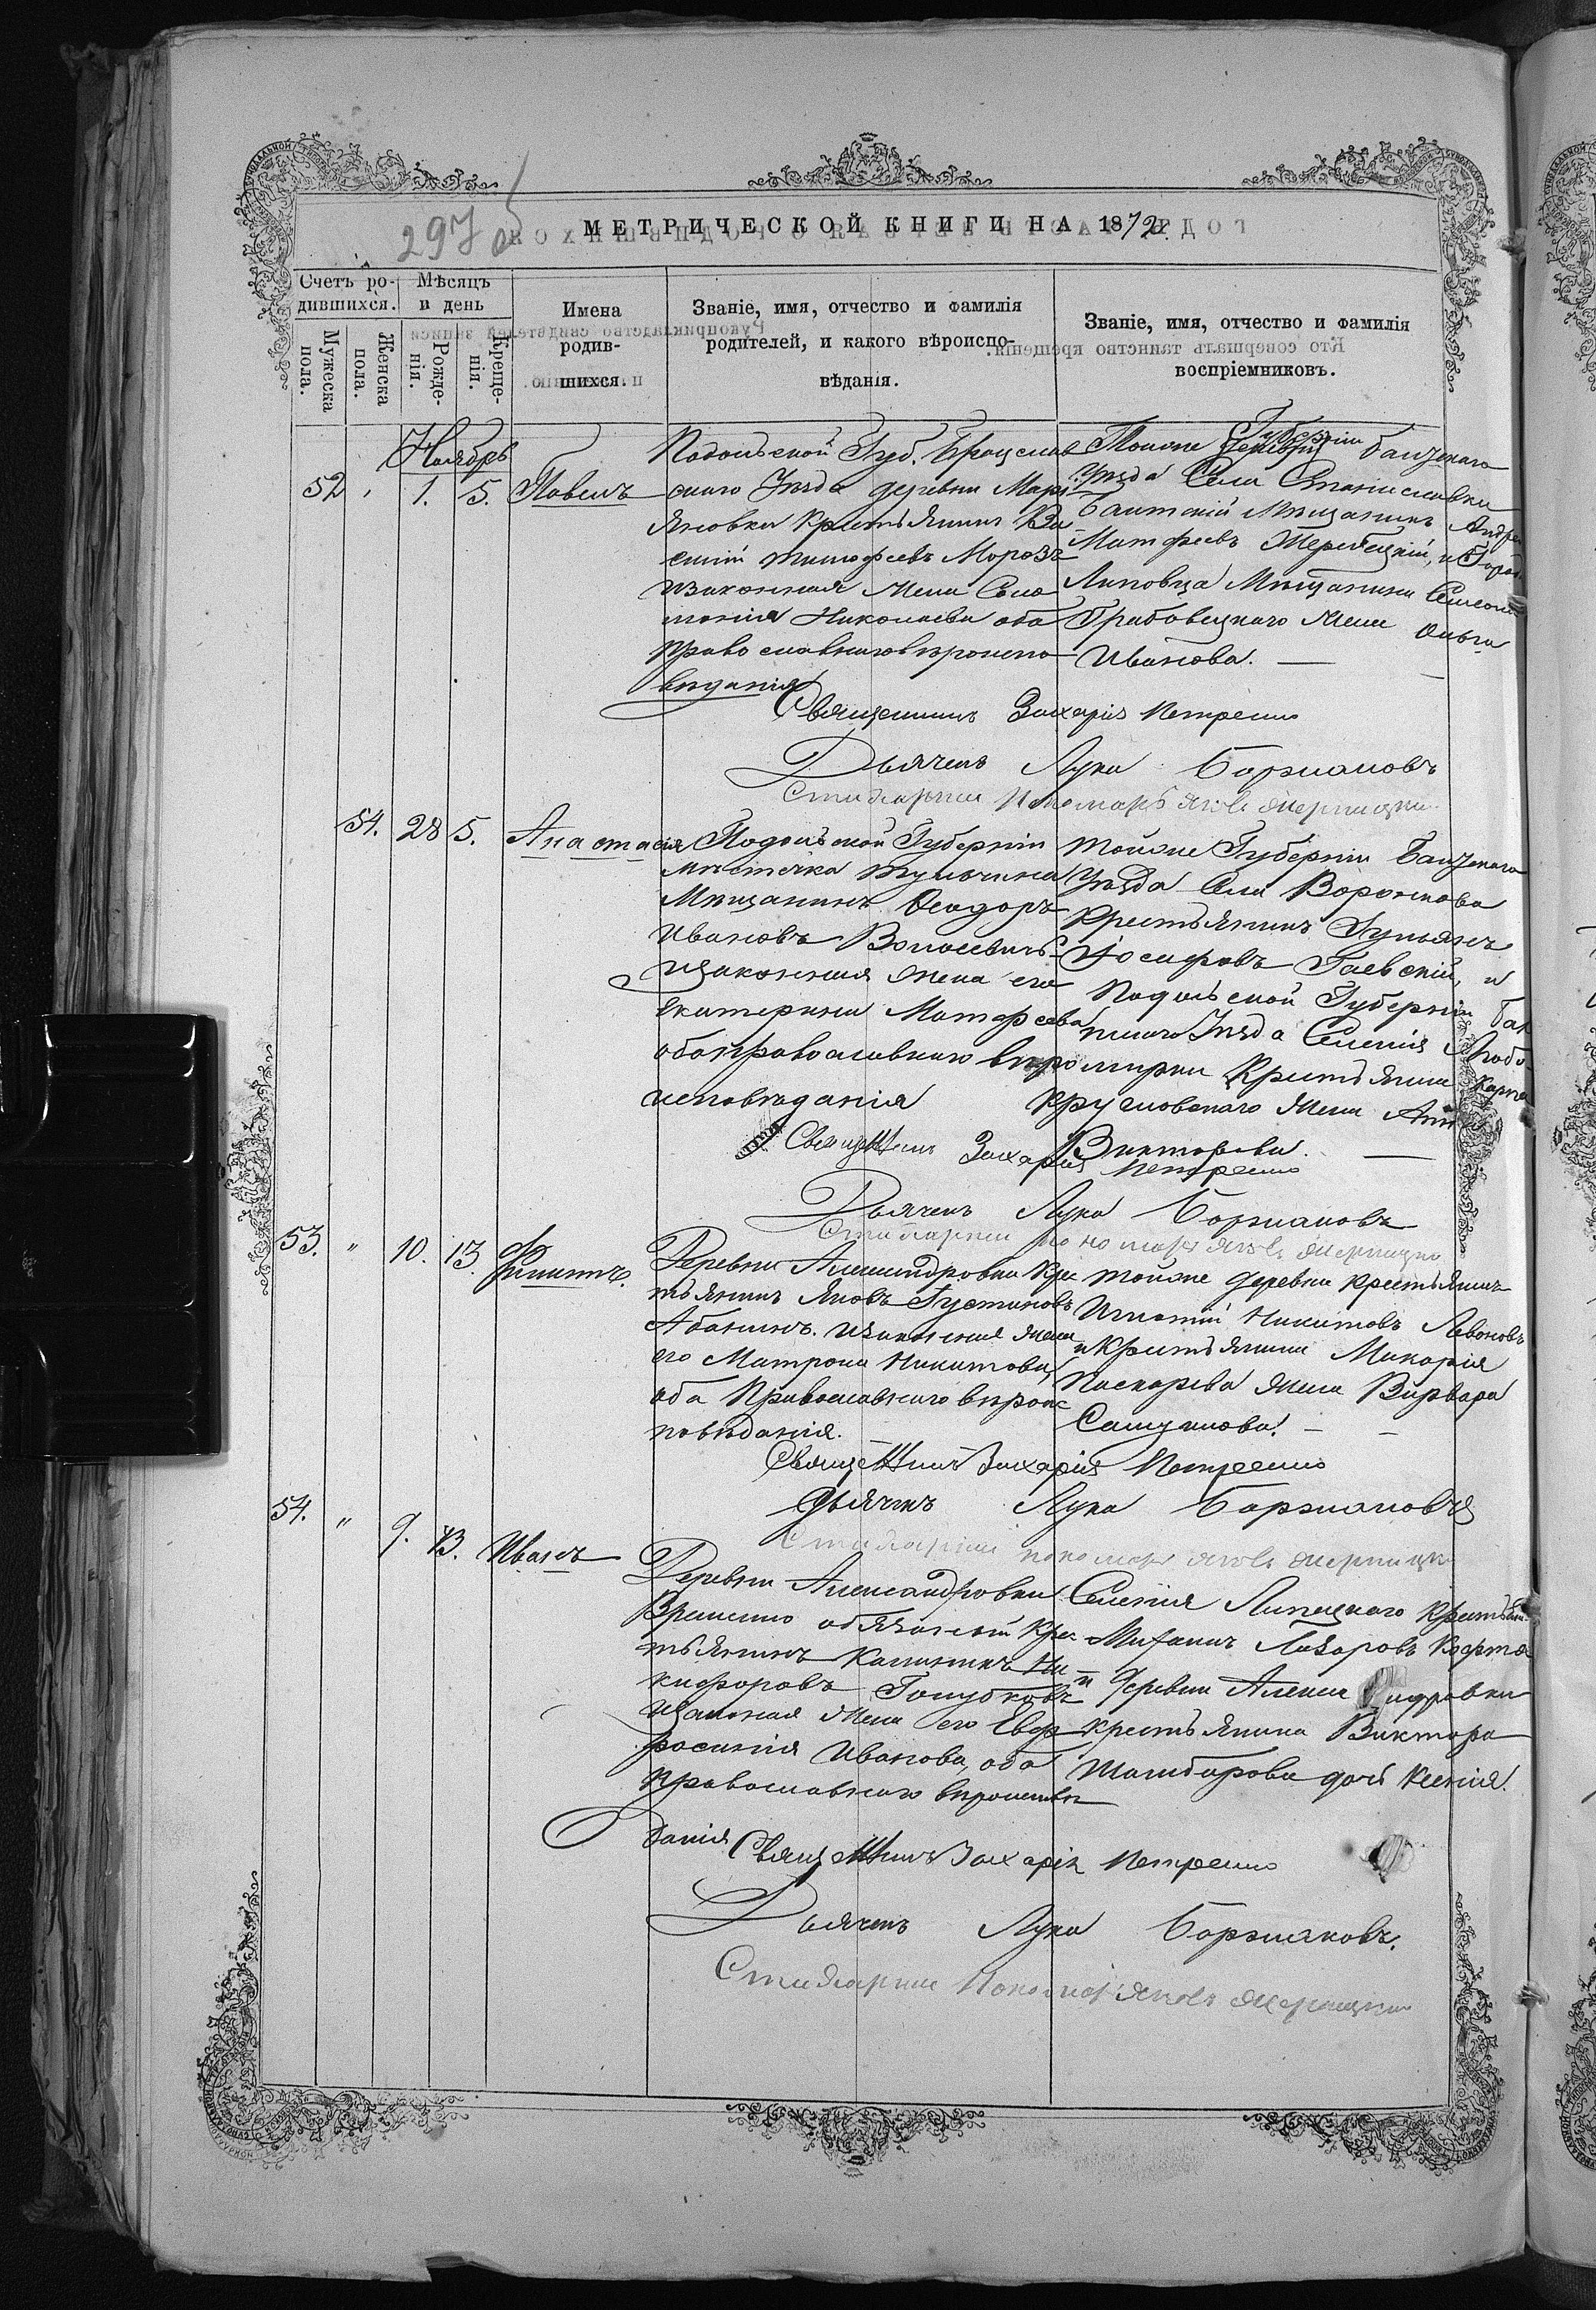 297 об
МЕТРИЧЕСКОЙ КНИГИ НА 1872
Счетъ родившихся.
Мужеска пола.
Женска пола.
Мѣсяцъ и день
Рожденія.
Крещенія.
Имена родившихся.
Званіе, имя, отчество и фамилія родителей, и какого вѣроисповѣданія.
Званіе, имя, отчество и фамилія воспріемниковъ.
Ноябрь
52 " 1. 5. Павелъ
Подольской Губ. Брацлав
скаго Уѣзда деревни Марь
яновки Крестьянинъ Ва
силій Тимофеевъ Морозъ
изаконная жена Соло
монія Николаева оба
православнаго вѣроиспо
вѣданія
Тойже Губерніи Балтскаго
Уѣзда Села Станиславки
Балтскій Мѣщанинъ Андрей
Матфеевъ и Город
Липовца Мѣщанина Семеона
Грабовецкаго жена Ольга
Иванова.
Священникъ Захарія Петренко
Дьячекъ Лука Боржаковъ
Стихарный Пономарь Яковъ
54. 28 5. Анастасія
Подольской Губерніи
мѣстечка Тульчина
Мѣщанинъ Ѳеодоръ
Ивановъ
изаконная жена его
Екатерина Матфеева
оба православнаго вѣро
исповѣданія
Тойже Губерніи Балтскаго
Уѣзда Села Воронкова
Крестьянинъ
Іосифовъ Гаевскій, и
Подольской Губерніи Бал
тскаго Уѣзда Селенія Любо
мирки Крестьянина Карпа
Кругловскаго жена Анна
Викторова.
Священникъ Захарія Петренко
Дьячекъ Лука Боржаковъ
Стихарный Пономарь Яковъ
53. " 10. 13. Филиппъ.
Деревни Александровки Крес
тьянинъ Яковъ Густиновъ
Абакинъ. изаконная жена
его Матрона Никитова,
оба Православнаго вѣроис
повѣданія.
Тойже деревни крестьянинъ
Игнатій Никитовъ Леоновъ
и Крестьянина Макарія
Пискарева жена Варвара
Священникъ Захарія Петренко
Дьячекъ Лука Боржаковъ
Стихарный пономарь Яковъ
54. " 9. 13. Иванъ
Деревни Александровки
Временно обязаный Крес
тьянинъ Калиникъ Ни
кифоровъ Голубковъ
изаконная жена его Евф
росинія Иванова, оба
Православнаго вѣроисповѣ
данія
Селенія Липецкаго Крестьянинъ
Михаилъ Лазаровъ
и деревни Александровки
крестьянина Виктора
дочь Ксенія.
Священникъ Захарія Петренко
Дьячекъ Лука Боржаковъ.
Стихарный Пономарь Яковъ